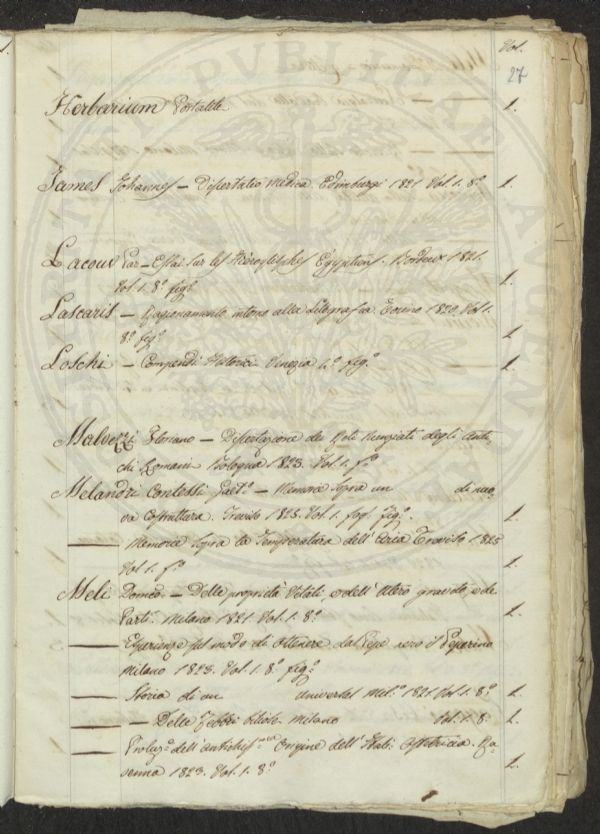 Vol.
27
Herbarium Portatile 1.
James Johannes — Dissertatio Medica Edimburgi 1821 Vol. 1. 8.º 1.
Lacour Par — Essai sur les Hieroglephes Egyptiens. Bordeux 1821.
Vol 1. 8.º fig.º 1.
Lascaris — Ragionamento intorno alla Litografia Torino 1820. Vol 1.
8.º fig.º 1
Loschi — Compendi Historici Venezia 1.º fig.º — 1.
Malvezzi Floriano — Dissertazione dei Voti Nunziati degli anti
chi Romani Bologna 1823. Vol. 1. f.º
Melandri Contessi Gaet.º — Memoria Sopra un di nuo
va Costruttura. Treviso 1823. Vol. 1. fog. fig.º. 1.
—— Memoria Sopra la Temperatura dell' Aria Treviso 1825
Vol 1. f.º 1.
Meli Domco. — Delle proprietà Vitali
Parti. Milano 1821. Vol. 1. 8.º 1.
—— Esperienze sul modo di ottenere dal Pepe nero il Peperino
Milano 1823. Vol. 1. 8.º fig.º 1.
—— Storia di un universal Mil.º 1821 Vol. 1. 8.º 1.
—— — Delle Febbri biliose Milano Vol. 1. 8. 1.
—— Origine dell' Ra
venna 1823. Vol. 1. 8.º 1.